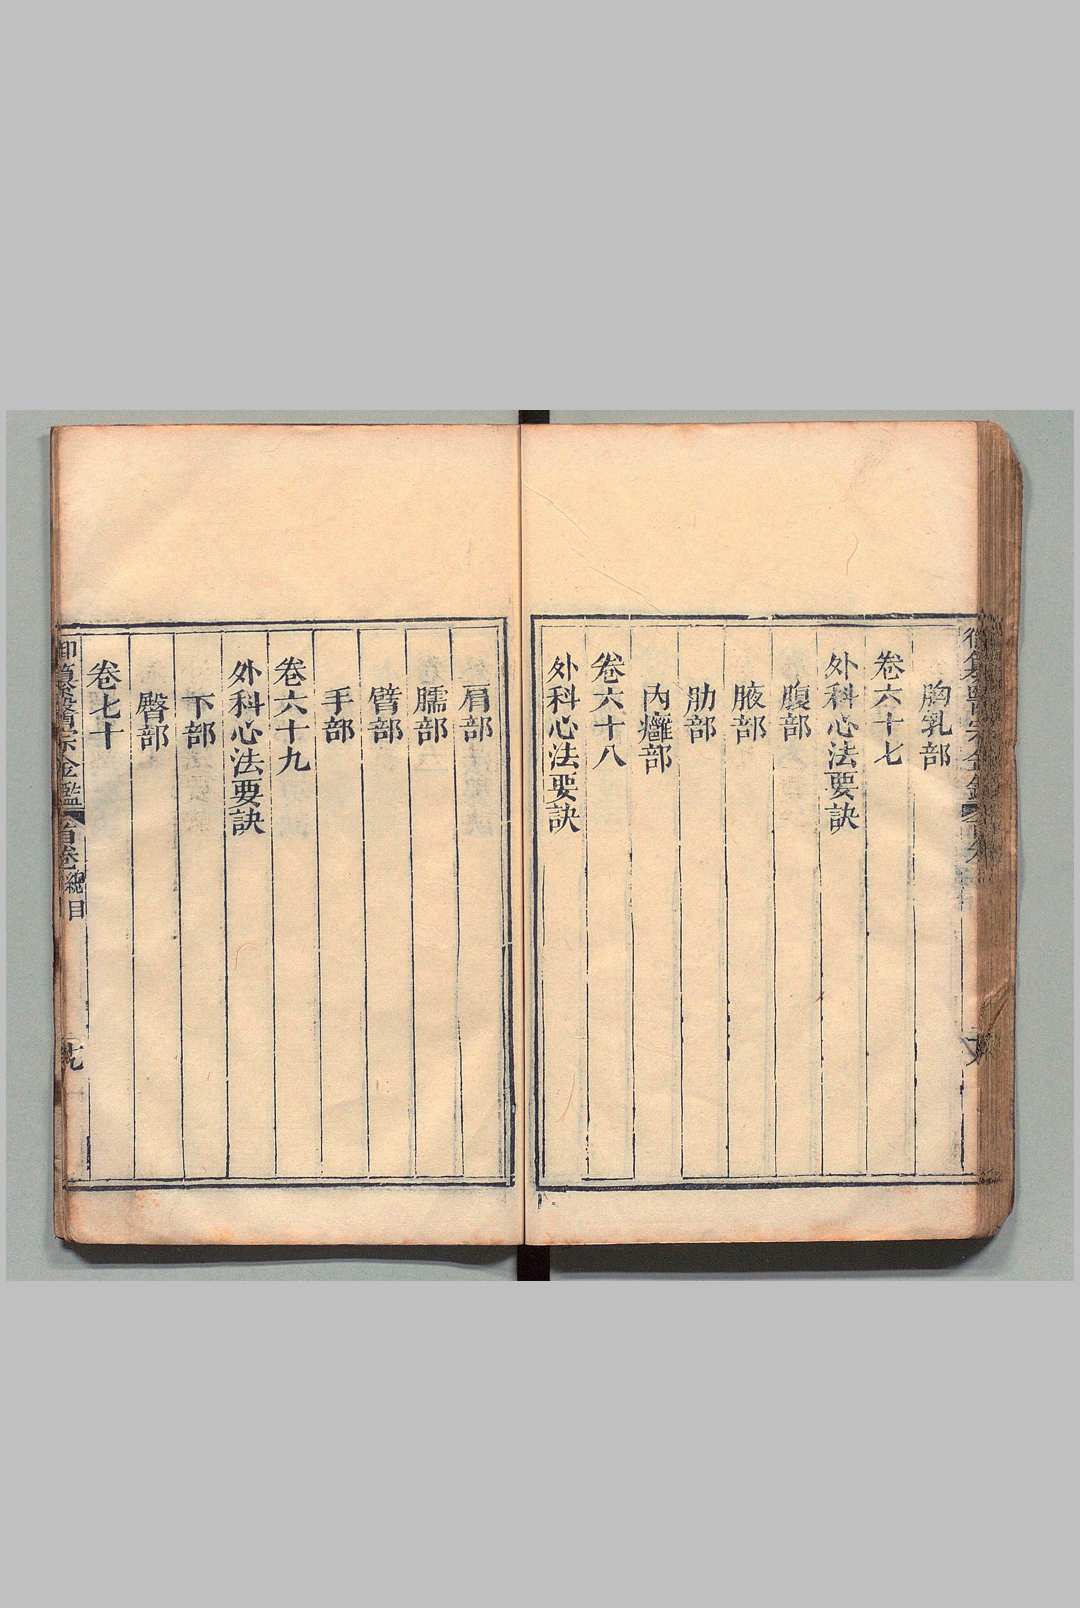 胸乳部
卷六十七
外科心法要訣
腹部
腋部
肋部
內癰部
卷六十八
外科心法要訣
肩部
臑部
臂部
手部
卷六十九
外科心法要訣
下部
臀部
卷七十
御纂醫宗金鑑 首卷 總目